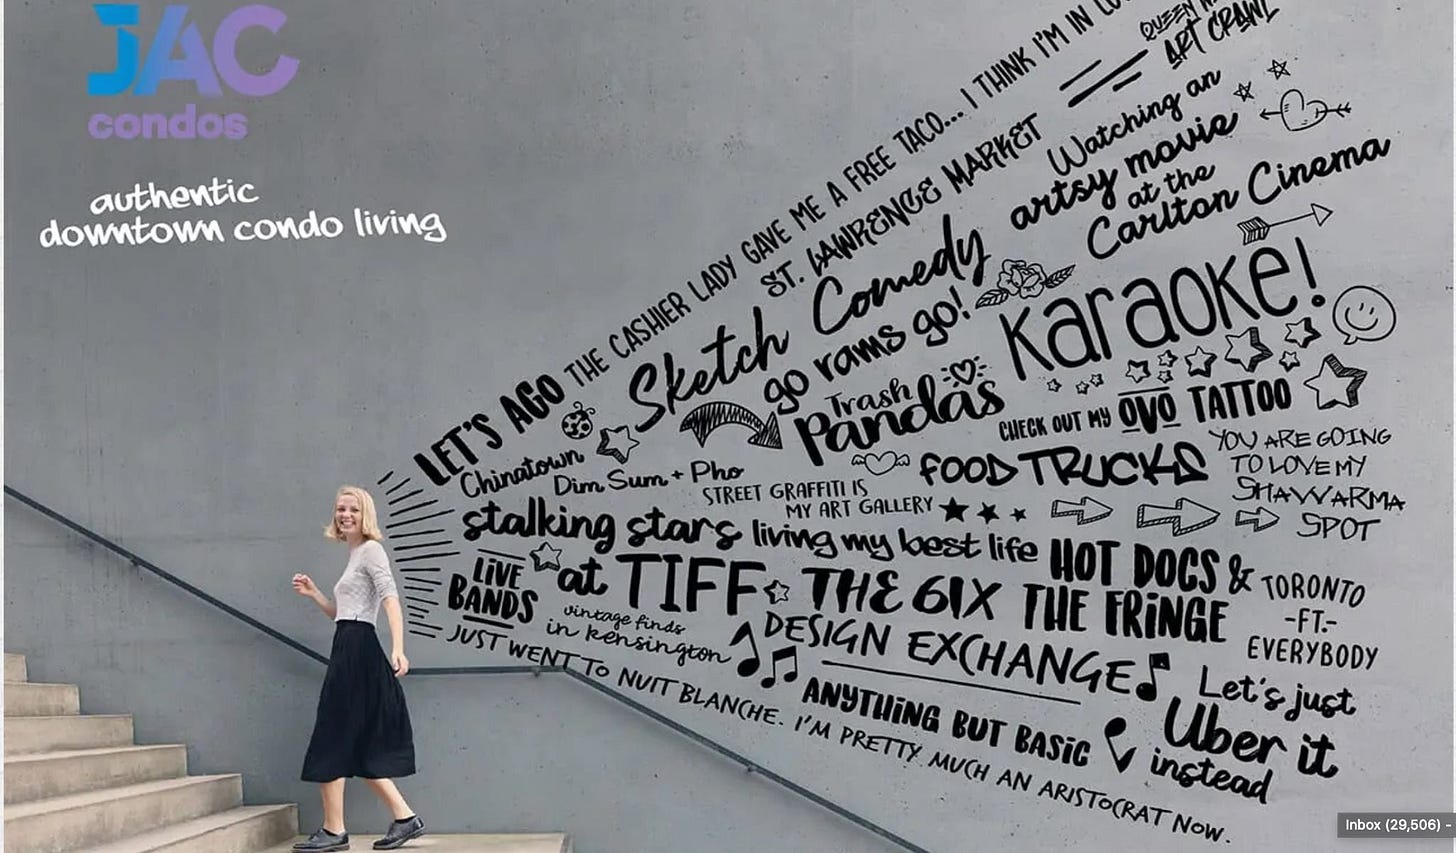 JAC
condos
authentic
downtown condo living
LET'S AGO THE CASHIER LADY GAVE ME A FREE TACO... I THINK I'M IN
QUEEN
ART CRAWL
ST. LAWRENCE MARKET
Watching an
artsy movie
at the
Carlton Cinema
Sketch Comedy
go rams go!
Karaoke!
Trash
Pandas
CHECK OUT MY OVO TATTOO
Chinatown
Dim Sum + Pho
FOOD TRUCKS
YOU ARE GOING
TO LOVE MY
SHAWARMA
SPOT
STREET GRAFFITI IS
MY ART GALLERY
stalking stars living my best life HOT DOCS &
LIVE
BANDS
at TIFF THE 6IX THE FRINGE
TORONTO
-FT.-
EVERYBODY
vintage finds
in kensington
DESIGN EXCHANGE
Let's just
Uber it
instead
ANYTHING BUT BASIC
JUST WENT TO NUIT BLANCHE. I'M PRETTY MUCH AN ARISTOCRAT NOW.
Inbox (29,506) -